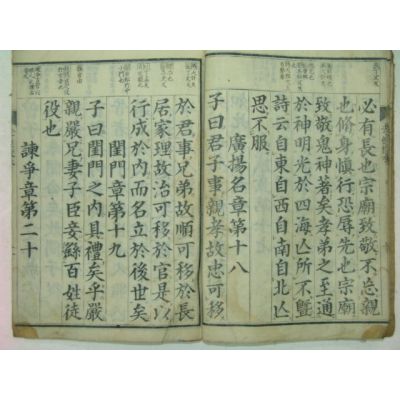 必有長也宗廟致敬不忘親
也修身慎行恐辱先也宗廟
致敬鬼神著矣孝弟之至通
於神明光於四海亾所不曁
詩云自東自西自南自北亾
思不服
廣揚名章第十八
子曰君子事親孝故忠可移
於君事兄弟故順可移於長
居家理故治可移於官是以
行成於內而名立於後世矣
閨門章第十九
子曰閨門之內具禮矣乎嚴
親嚴兄妻子臣妾繇百姓徒
役也
諫爭章第二十